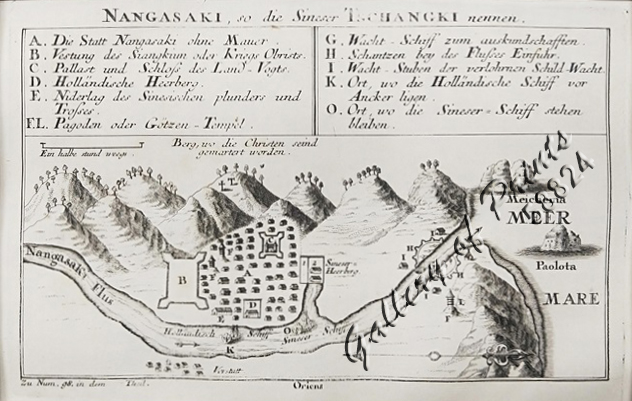 NANGASAKI, so die Sineser TSCHANGKI nennen.
A. Die Statt Nangasaki ohne Mauer.
B. Vestung des Siangkum oder Kriegs Obrists.
C. Pallast und Schloß des Land-Vogts.
D. Holländische Heerberg.
E. Niderlag des Sinesischen plunders und
Trosses.
EL. Pagoden oder Götzen-Tempel.
G. Wacht-Schiff zum auskundschafften.
H. Schantzen bey des Flusses Einfuhr.
I. Wacht-Stuben der verlohrnen Schild-Wacht.
K. Ort, wo die Holländische Schiff vor
Ancker ligen.
O. Ort, wo die Sineser-Schiff stehen
bleiben.
Ein halbe stund wegs.
Berg, wo die Christen seind
gemartert worden.
MEER
Paolota
MARE
Nangasaki Flus
B
A
D
E
Sineser-
Heerberg.
Holländisch Schiff
O
Sineser Schif
K
Vorstatt
H
I
L
Gallery of Prints
824
Zu Num. 98. in dem Theil.
Orient